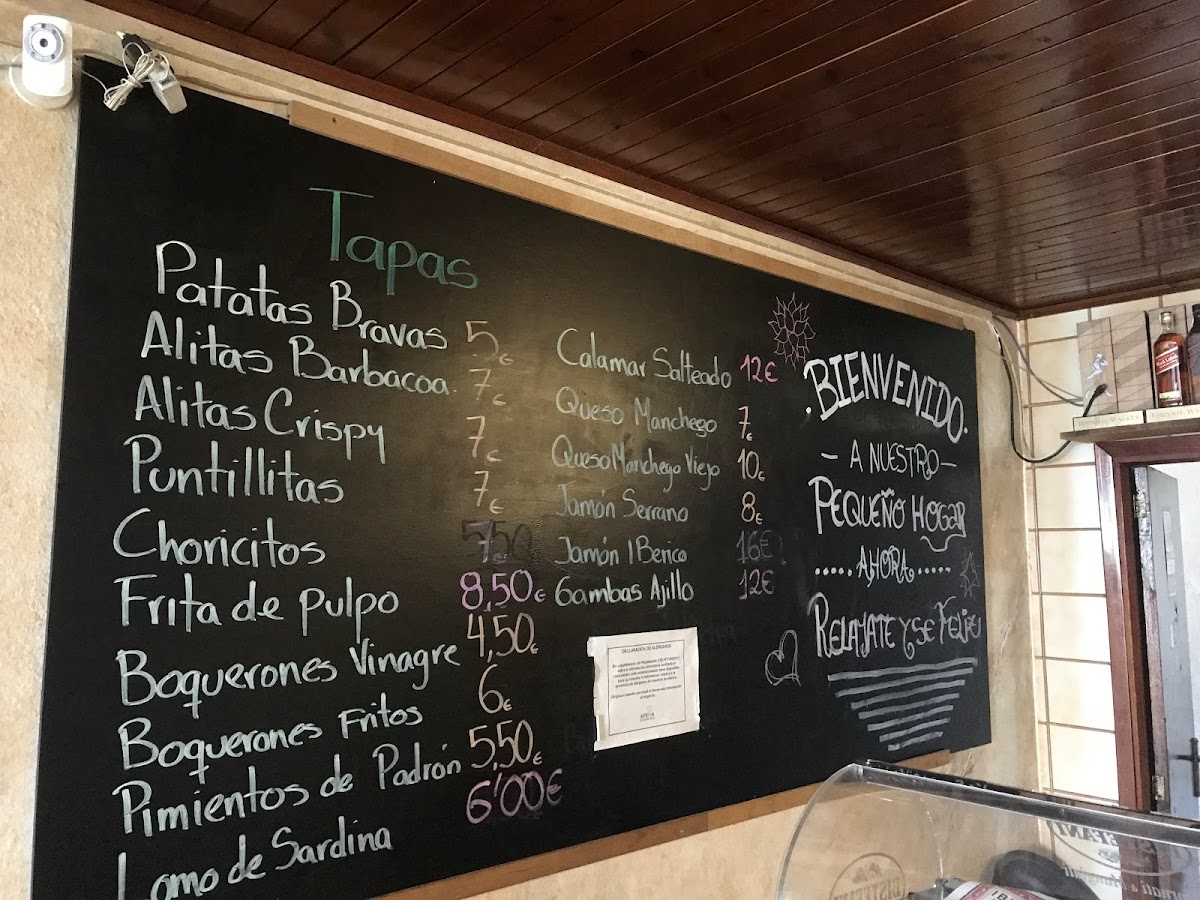 Tapas
Patatas Bravas 5€
Alitas Barbacoa 7€
Alitas Crispy 7€
Puntillitas 7€
Choricitos 7€
Frita de pulpo 8,50€
Boquerones Vinagre 4,50€
Boquerones Fritos 6€
Pimientos de Padrón 5,50€
Lomo de Sardina 6'00€
Calamar Salteado 12€
Queso Manchego 7€
Queso Manchego Viejo 10€
Jamón Serrano 8€
Jamón IBerico 16€
Gambas Ajillo 12€
DECLARACIÓN DE ALÉRGENOS
.BIENVENIDO.
- A NUESTRO -
PEQUEÑO HOGAR
..... AHORA .....
RELAJATE Y SE FELIZ